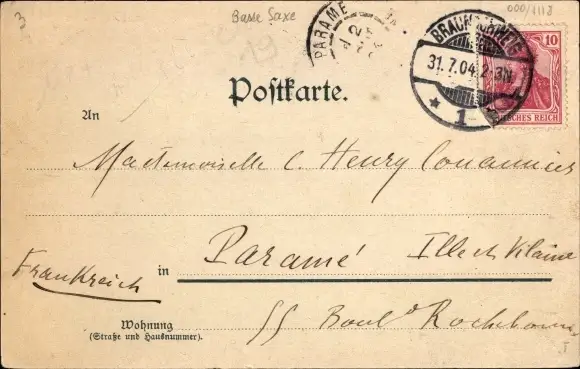 3
Basse Saxe
000/1113
19
PARAMÉ
BRAUNSCHWEIG
31.7.04. 2-3N
* 1
10
DEUTSCHES REICH
Postkarte.
An
Mademoiselle C. Henry
Paramé Ille et Vilaine
Frankreich
in
Wohnung
(Straße und Hausnummer).
55 Boul d